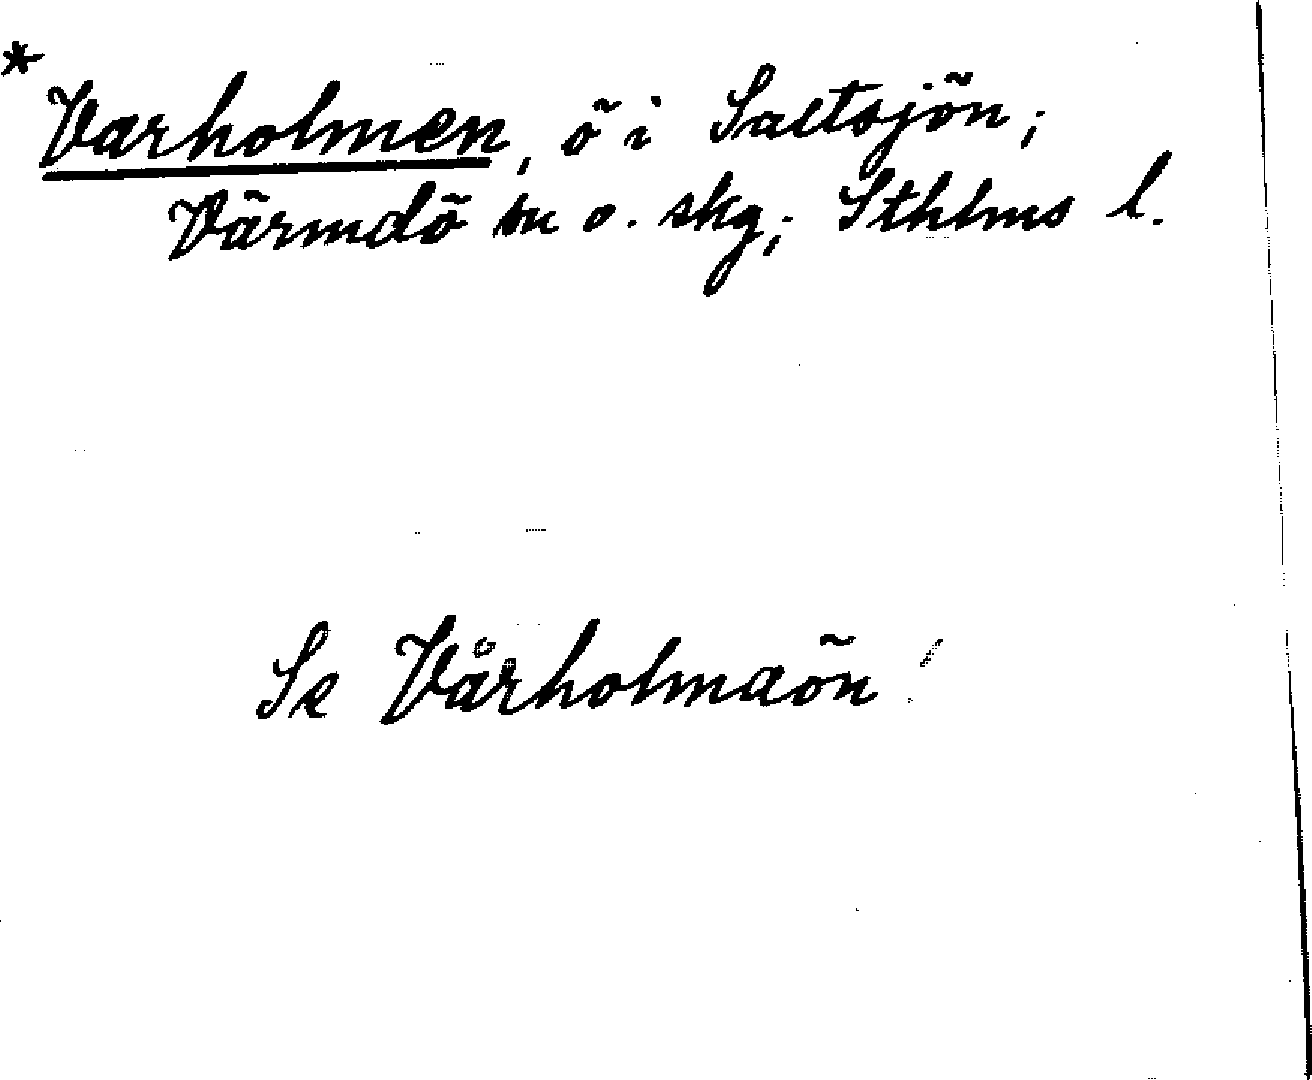 *
Varholmen, ö i Saltsjön;
Värmdö sn o. skg; Sthlms l.
Se Vårholmaön!